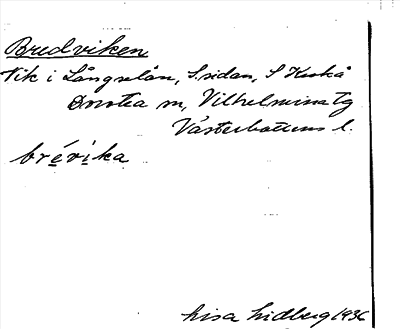 Bredviken
Vik i Långselån, S. sidan, S
Dorotea m, Vilhelmina tg
Västerbottens l.
brévika
Lisa Lidberg 1936